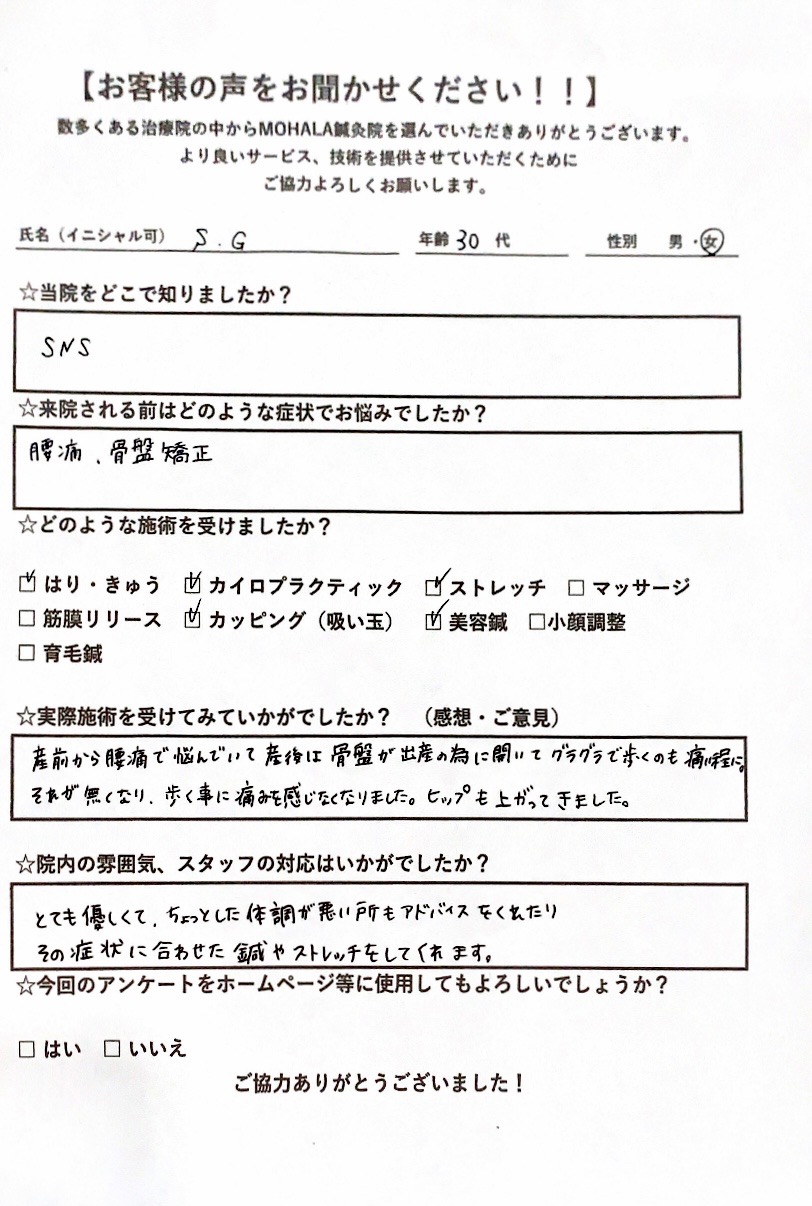 【お客様の声をお聞かせください！！】
数多くある治療院の中からMOHALA鍼灸院を選んでいただきありがとうございます。
より良いサービス、技術を提供させていただくために
ご協力よろしくお願いします。
氏名（イニシャル可） S.G 年齢 30 代 性別 男・女
☆当院をどこで知りましたか？
SNS
☆来院される前はどのような症状でお悩みでしたか？
腰痛、骨盤矯正
☆どのような施術を受けましたか？
☑ はり・きゅう ☑ カイロプラクティック ☑ ストレッチ □ マッサージ
□ 筋膜リリース ☑ カッピング（吸い玉） ☑ 美容鍼 □小顔調整
□ 育毛鍼
☆実際施術を受けてみていかがでしたか？ （感想・ご意見）
産前から腰痛で悩んでいて産後は骨盤が出産の為に開いてグラグラで歩くのも痛い程に。
それが無くなり、歩く事に痛みを感じなくなりました。ヒップも上がってきました。
☆院内の雰囲気、スタッフの対応はいかがでしたか？
とても優しくて、ちょっとした体調が悪い所もアドバイスをくれたり
その症状に合わせた鍼やストレッチをしてくれます。
☆今回のアンケートをホームページ等に使用してもよろしいでしょうか？
□ はい □ いいえ
ご協力ありがとうございました！